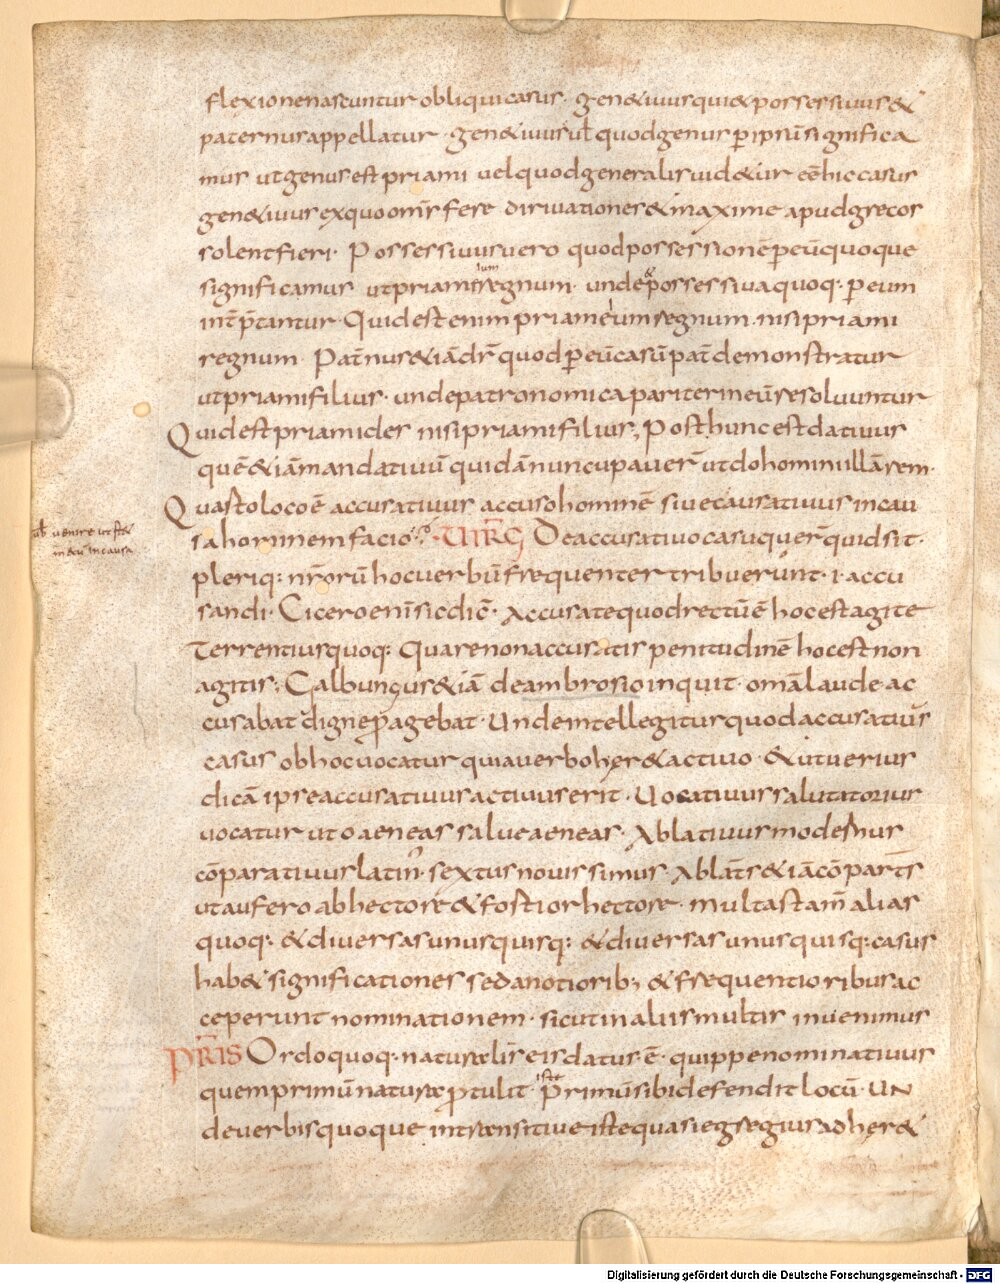 flexione nascuntur obliqui casus · gen&iuus qui & possessiuus &
paternus appellatur · gen&iuus ul̄ quod genus p̄ ipsū significa
mus ut genus est priami uel quod generalis uid&ur eē hic casus
gen&iuus ex quo om̄s fere diriuationes & maxime apud grecos
solent fieri · Possessiuus uero quod possessionē p̄ eū quoque
significamus ut priami regnum · unde & possessiua quoq; p̄ eum
int̄p̄tantur · Quid est enim priameium regnum · nisi priami
regnum · Pat̄nus &iā dr̄ quod p̄ eū casū pat̄ demonstratur
ut priami filius · unde patronomica pariter in eū resoluuntur
Quid est priamides nisi priami filius; Post hunc est datiuus
quē &iā mandatiuū quidā nuncupauer̄ ut do homini illā rem ·
Quasto loco ē accusatiuus accuso hominē siue causatiuus in cau
ul̄
sa hominem facio · UIRḠ De accusatiuo casu quer̄ quid sit ·
pleriq; nr̄orū hoc uerbū frequenter tribuerunt · i · accu
sandi · Cicero eni sic dic̄ · Accusate quod rectū ē hoc est agite
Terrentius quoq; Quare non accusatis penitudinē hoc est non
agitis; Galbungus &iā de ambrosio inquit · omā laude ac
cusabat digne p̄ agebat · Unde intellegitur quod accusatiuus
casus ob hoc uocatur quia uerbo her& actiuo · & ut uerius
dicā ipse accusatiuus actiuus erit · Uocatiuus salutatorius
uocatur ut o aeneas salue aeneas · Ablatiuus modernus
cōparatiuus latin̄ · sextus nouissimus · Ablat̄s &iā cōparat̄s
ut aufero ab hectore & fostior hectore · multas tam̄ alias
quoq; & diuersas unusquisq; & diuersas unusquisq; casus
hab& significationes sed a notiorib; & frequentioribus ac
ceperunt nominationem · sicut in aliis multis inuenimus
PR̄IS Ordo quoq; naturalis eis datus ē · quippe nominatiuus
quem primū natura p̄tulit · primū sibi defendit locū · UN
de uerbis quoque intransitiue iste quasi egregius adher&
Digitalisierung gefördert durch die Deutsche Forschungsgemeinschaft - DFG